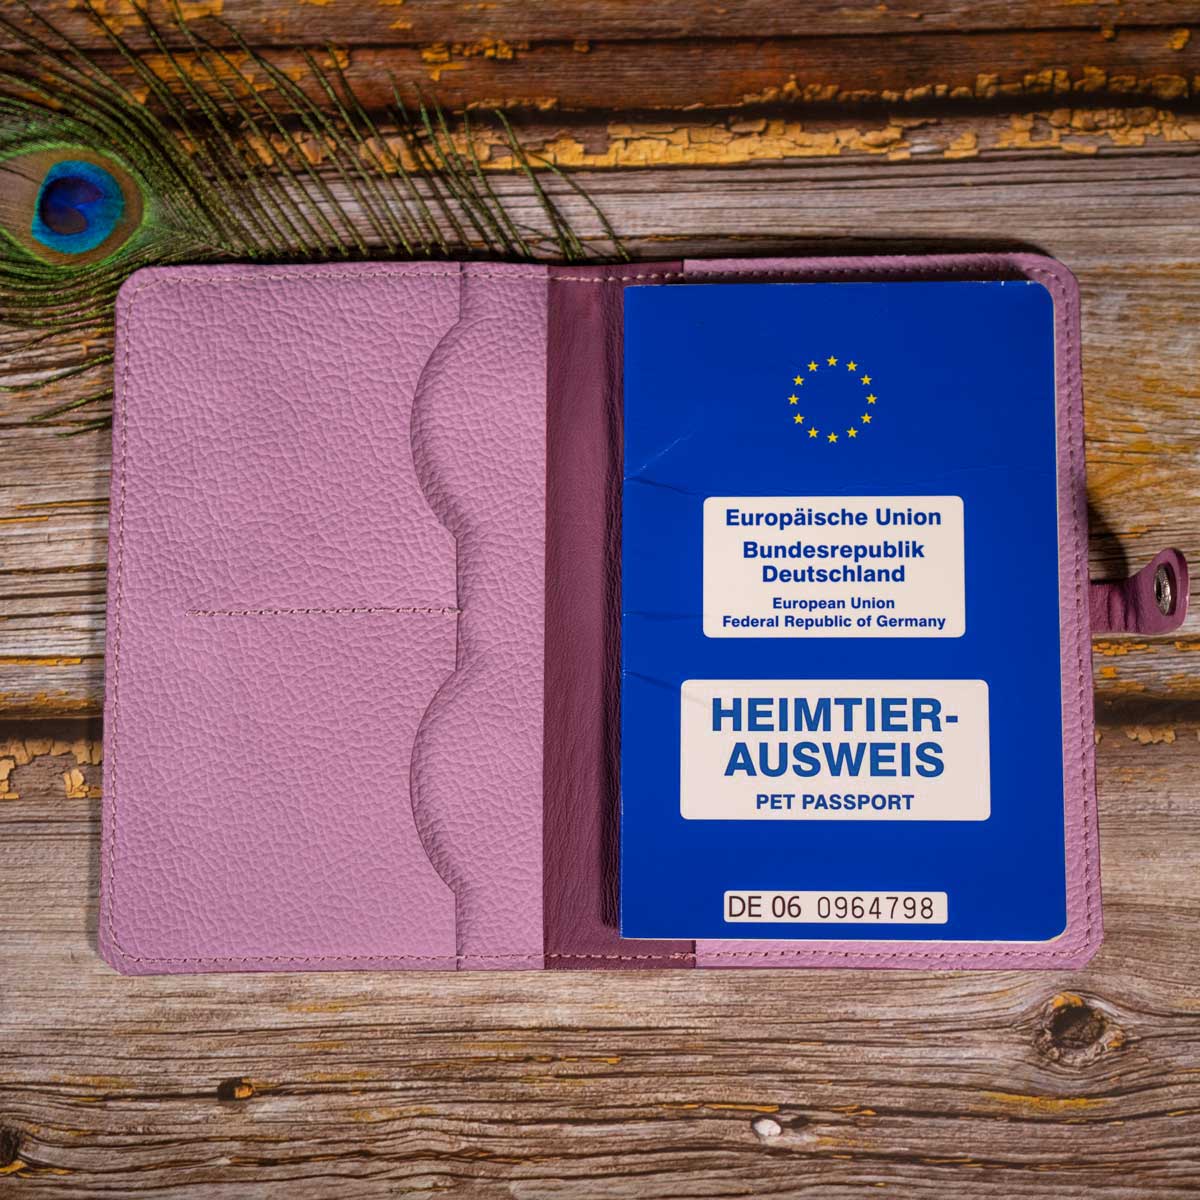 Europäische Union
Bundesrepublik
Deutschland
European Union
Federal Republic of Germany
HEIMTIER-
AUSWEIS
PET PASSPORT
DE 06 0964798